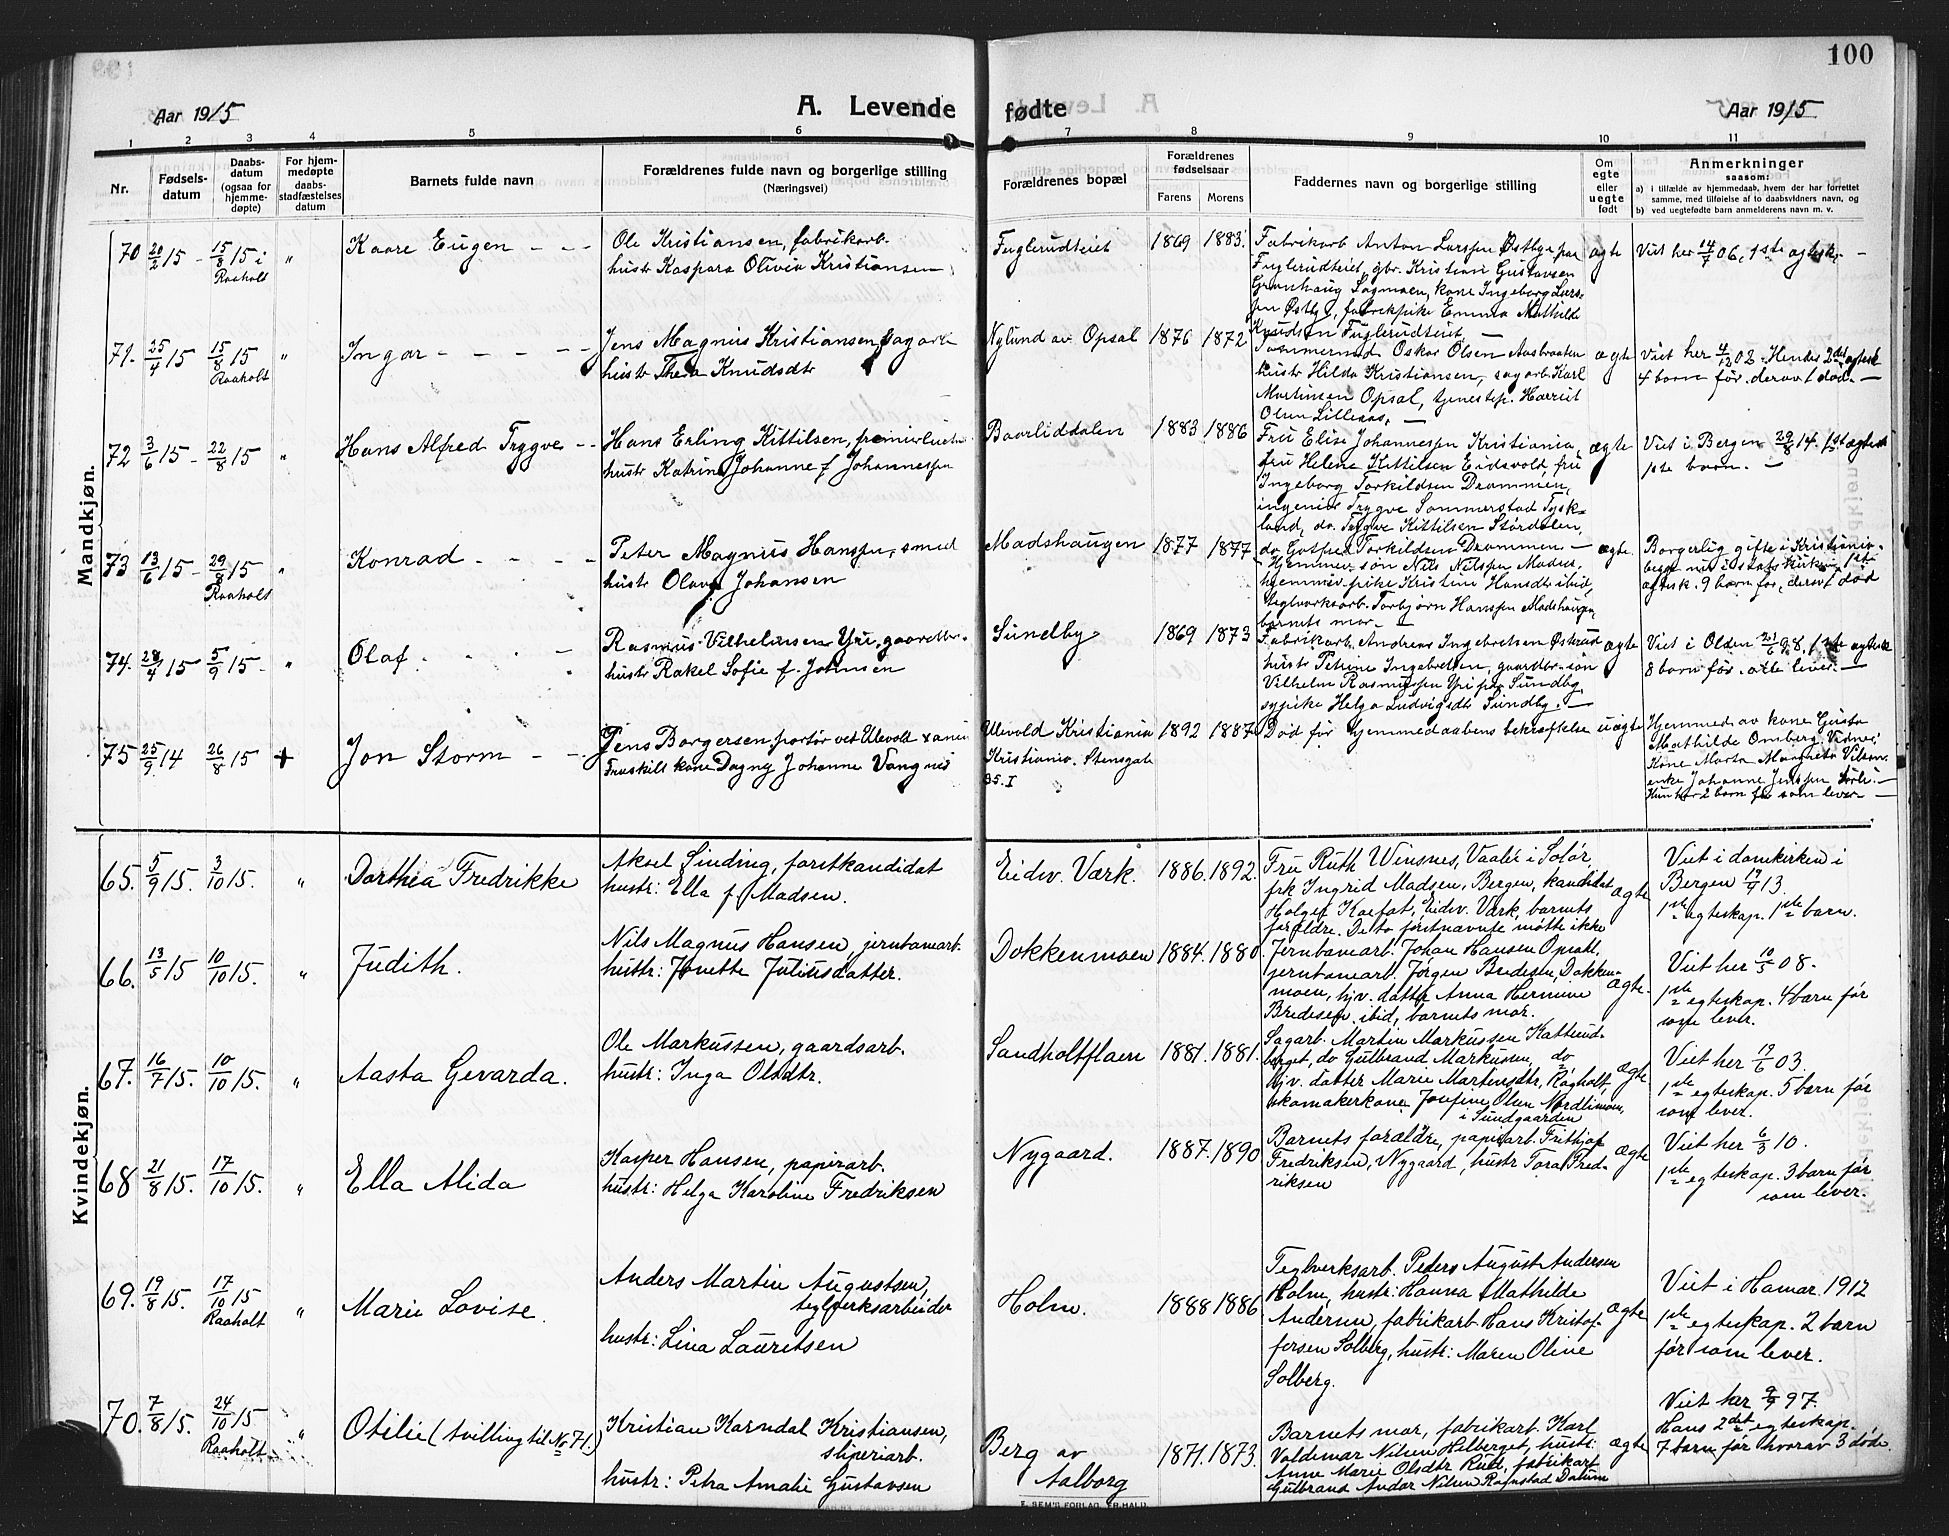 100
Aar 1915
A. Levende
fødte
Aar 1915
1 2 3 4 5 6 7 8 9 10 11
Nr.
Fødsels-
datum
Daabs-
datum
(ogsaa for
hjemme-
døpte)
For hjem-
medøpte
daabs-
stadfæstelses
datum
Barnets fulde navn
Forældrenes fulde navn og borgerlige stilling
(Næringsvei)
Forældrenes bopæl
Forældrenes
fødselsaar
Farens Morens
Faddernes navn og borgerlige stilling
Om
egte
eller
uegte
født
Anmerkninger
saasom:
a) i tilfælde av hjemmedaab, hvem der har forrettet
samme, med tilføielse af to daabsvidners navn, og
b) ved uegtefødte barn anmelderens navn m. v.
Mandkjøn.
70 20/2 15 - 15/8 15 i
Raaholt
"
Kaare Eugen - - -
Ole Kristiansen, fabrikarb.
hustr Kaspara Olivia Kristiansen
Fuglerudteiet
1869 1883.
Fabrikarb Anton Larssen Østbye paa
Fuglerudteiet, gbr. Kristian Gustavsen
Grønhaug Sagmoen, kone Ingeborg Lars-
sen Østby, fabrikpike Emma Mathilde
Knudsen Fuglerudteiet, -
ægte
Viet her 14/7 06, 1ste egtesk. -
71. 25/4 15 15/8 15
Raaholt
"
Ingar - - - - -
Jens Magnus Kristiansen, sagarb
hustr Thea Knudsdtr
Nylund av Opsal
1876 1872
Tømmermd Oskar Olsen Aasbraaten
hustr Hilda Kristiansen, sagarb Karl
Martinsen Opsal, tjenestep. Harriet
Olsen Lillesøs, -
ægte
Viet her 4/12 02. Hendes 2det egtesk
4 barn før, derav 1 død. -
72 3/6 15 - 22/8 15
"
Hans Alfred Trygve - -
Hans Erling Kittilsen,
hustr Katrine Johanne f Johannessen
Baarliddalen
1883 1886
Fru Elise Johannessen Kristiania,
fru Helene Kittilsen Eidsvold, fru
Ingeborg Torkildsen Drammen,
ingeniør Trygve Sommerstad Tysk-
land, do. Trygve Kittilsen Stördalen,
do Gotfred Torkildsen Drammen -
ægte
Viet i Bergen 29/8 14. 1st egtesk
1ste barn. -
73 13/6 15 - 29/8 15
Raaholt
"
Konrad - - -
Peter Magnus Hanssen, smed
hustr Olava Johansen
Madshaugen
1877 1877
Hjemmev. søn Nils Nilssen Madss,
hjemmev. pike Kristine Hansdtr ibid,
teglverksarb. Torbjørn Hanssen Madshaugen,
barnets mor -
ægte
Borgerlig gifte i Kristiania.
egtesk. 9 barn før, derav 1 død
74. 28/4 15 5/9 15 -
"
Olaf. - - -
Rasmus Vilhelmsen Yri, gaardbr.
hustr Rakel Sofie f. Johnsen
Sundby
1869 1873
Fabrikarb. Andreas Ingebretsen Østrud
hustr Petrine Ingebretsen, gaardbr. søn
Vilhelm Rasmussen Yri paa Sundby,
sypike Helga Ludvigsdtr Sundby. -
ægte
Viet i Olden 21/6 98, 1ste egtesk
8 barn før - alle lever. -
75 25/9 14 26/8 15
+
Jon Storm - -
Jens Borgersen portør ved Ulevold
Fraskilt kone Dagny Johanne Vangnis
Ulevold Kristiania
Kristiania. Stensgat
35. I
1892 1887
Død før hjemmedaabens bekræftelse
uægte
Hjemmed av kone Gusta
Mathilde Omberg. Vidner:
Kone Marta Margreta Vilsen.
enke Johanne Jenssen Sørli. -
Hun har 2 barn før som lever -
Kvindekjøn.
65. 5/9 15. 3/10 15.
"
Dorthea Fredrikke
Aksel Sinding, forstkandidat
hustr: Ella f Madsen.
Eidsv. Værk.
1886. 1892.
Fru Ruth Winsnes, Vaaler i Solør,
frk Ingrid Madsen, Bergen, kandidat
Holger Koefot, Eidsv. Værk, barnets
forældre. De to førstnævnte møtte ikke
ægte
Viet i domkirken i
Bergen 19/7 13.
1ste egteskap. 1ste barn.
66. 13/5 15 10/10 15.
"
Judith.
Nils Magnus Hansen, jernbanearb.
hustr: Jonette Juliusdatter.
Dokkenmoen
1884. 1880.
Jernbanearb. Johan Hansen Opsal,
jernbanearb. Jørgen Bredesen, Dokken-
moen, hjv. datter Anna Hermine
Bredesen ibid, barnets mor.
ægte.
Viet her 10/5 08.
1ste egteskap. 4 barn før
som lever.
67. 16/7 15. 10/10 15.
"
Aasta Gevarda.
Ole Markussen, gaardsarb.
hustr: Inga Olsdtr.
Sandholtflaen
1881. 1881.
Sagarb. Martin Markussen Katterud-
berget, do Gulbrand Markusen, do
hjv. datter Marie Martensdtr, Raaholt,
skomakerkone Josefine Olsen Nordlimoen,
i Sundgaarden
ægte
Viet her 19/6 03.
1ste egteskap. 5 barn før
som lever.
68 21/8 15. 17/10 15.
"
Ella Alida
Kasper Hansen, papirarb.
hustr: Helga Karoline Fredriksen
Nygaard.
1887. 1890
Barnets forældre, papirarb. Frithjof
Fredriksen, Nygaard, hustr Tora Fred-
riksen
ægte
Viet her 6/3 10.
1ste egteskap. 3 barn før
som lever.
69. 19/8 15. 17/10 15
Raaholt
"
Marie Lovise.
Anders Martin Augustsen,
teglverksarbeider
hustr: Lina Lauritsen
Holm.
1888 1886
Teglverksarb. Peders August Andersen
Holm, hustr: Hanna Mathilde
Andersen, fabrikarb Hans Kristof-
fersen Solberg, hustr: Maren Oline
Solberg.
ægte
Viet i Hamar 1912
1ste egteskap. 2 barn
før som lever.
70. 7/8 15. 24/10 15
Raaholt
"
Otilie (tvilling til No 71.)
Kristian Karndal Kristiansen,
sliperiarb.
hustr: Petra Amalie Gustavsen
Berg av
Aalborg
1871. 1873.
Barnets mor, fabrikarb. Karl
Valdemar Nilsen Hilberget, hustr:
Anne Marie Olsdtr Rud, fabrikarb
Gulbrand Andor Nilsen Ragnstad Datum
ægte
Viet her 9/7 97.
Hans 2det egteskap.
7 barn før hvorav 3 døde.
E. SEM'S FORLAG, FR.HALD.